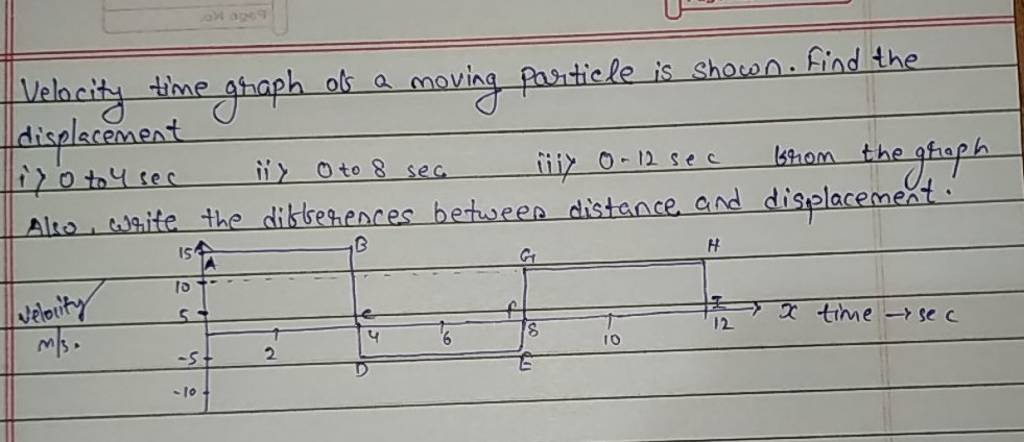 Velocity time graph of a moving particle is shown. Find the
displacement
i) 0 to 4 sec ii) 0 to 8 sec iii) 0-12 sec from the graph
Also, write the differences between distance and displacement.
15 A B G H
10
Velocity 5 C F I x time → sec
m/s. 2 4 6 8 10 12
-5 D E
-10